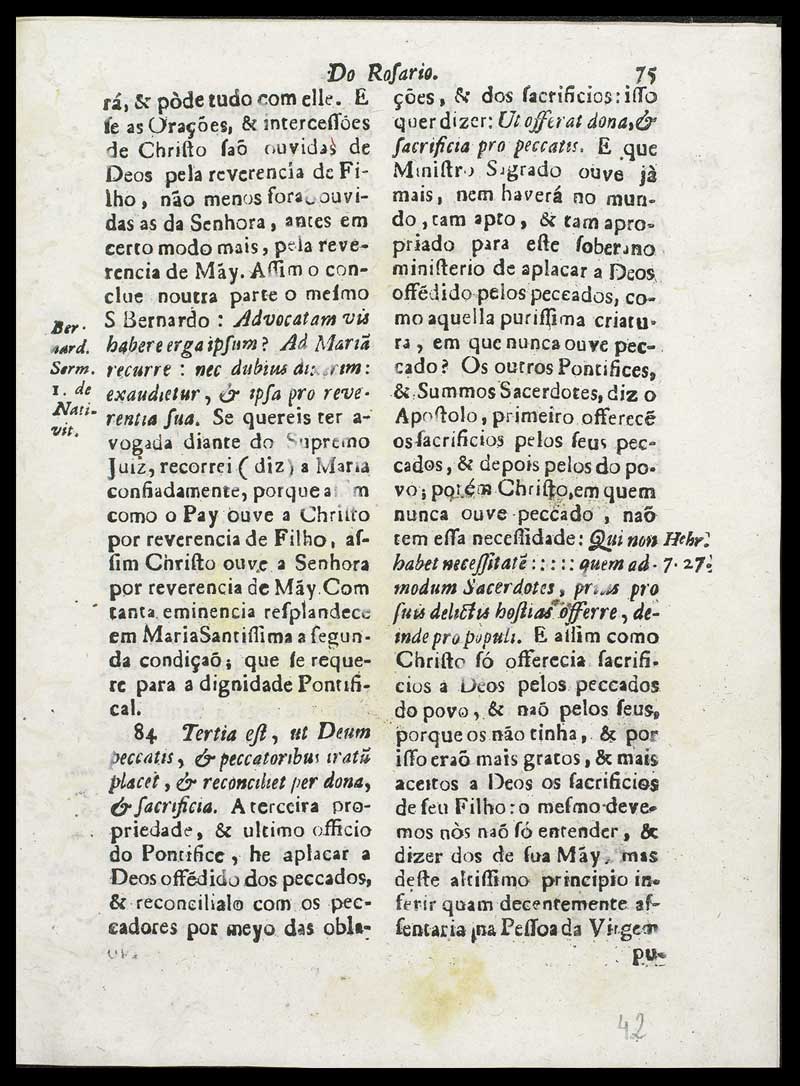 Do Roſario. 75
rá, & pòde tudo com elle. E
ſe as Orações, & interceſſões
de Chriſto ſaõ ouvidas de
Deos pela reverencia de Fi-
lho, não menos ouvi-
das as da Senhora, antes em
certo modo mais, pela reve-
rencia de Mãy. Aſſim o con-
clue noutra parte o meſmo
S Bernardo: Advocatam vis
habere erga ipſum? Ad Mariã
recurre: nec dubius :
exaudietur, & ipſa pro reve-
rentia ſua. Se quereis ter a-
vogada diante do Supremo
Juiz, recorrei (diz) a Maria
confiadamente, porque
como o Pay ouve a Chriſto
por reverencia de Filho, aſ-
ſim Chriſto ouve a Senhora
por reverencia de Mãy. Com
tanta eminencia reſplandece
em Maria Santiſſima a ſegun-
da condiçaõ; que ſe reque-
re para a dignidade Pontifi-
cal.
84 Tertia eſt, ut Deum
peccatis, & peccatoribus iratũ
placet, & reconciliet per dona,
& ſacrificia. A terceira pro-
priedade, & ultimo officio
do Pontifice, he aplacar a
Deos offẽdido dos peccados,
& reconcilialo com os pec-
cadores por meyo das obla-
Ber-
nard.
Serm.
1. de
Nati-
vit.
ções, & dos ſacrificios: iſſo
quer dizer: Ut offerat dona, &
ſacrificia pro peccatis. E que
Miniſtro Sagrado ouve jà
mais, nem haverá no mun-
do, tam apto, & tam apro-
priado para eſte ſoberano
miniſterio de aplacar a Deos
offẽdido pelos peccados, co-
mo aquella puriſſima criatu-
ra, em que nunca ouve pec-
cado? Os outros Pontifices,
& Summos Sacerdotes, diz o
Apoſtolo, primeiro offerecẽ
os ſacrificios pelos ſeus pec-
cados, & depois pelos do po-
vo; porém Chriſto, em quem
nunca ouve peccado, naõ
tem eſſa neceſſidade: Qui non
habet neceſſitatẽ ::::: quem ad-
modum Sacerdotes, pro
ſuis delictis hoſtias offerre, de-
inde pro populi. E aſſim como
Chriſto ſó offerecia ſacrifi-
cios a Deos pelos peccados
do povo, & naõ pelos ſeus,
porque os não tinha, & por
iſſo eraõ mais gratos, & mais
aceitos a Deos os ſacrificios
de ſeu Filho: o meſmo deve-
mos nòs naõ ſó entender, &
dizer dos de ſua Mãy, mas
deſte altiſſimo principio in-
ferir quam decentemente aſ-
ſentaria na Peſſoa da Virgem
pu-
Hebr.
7. 27.
42